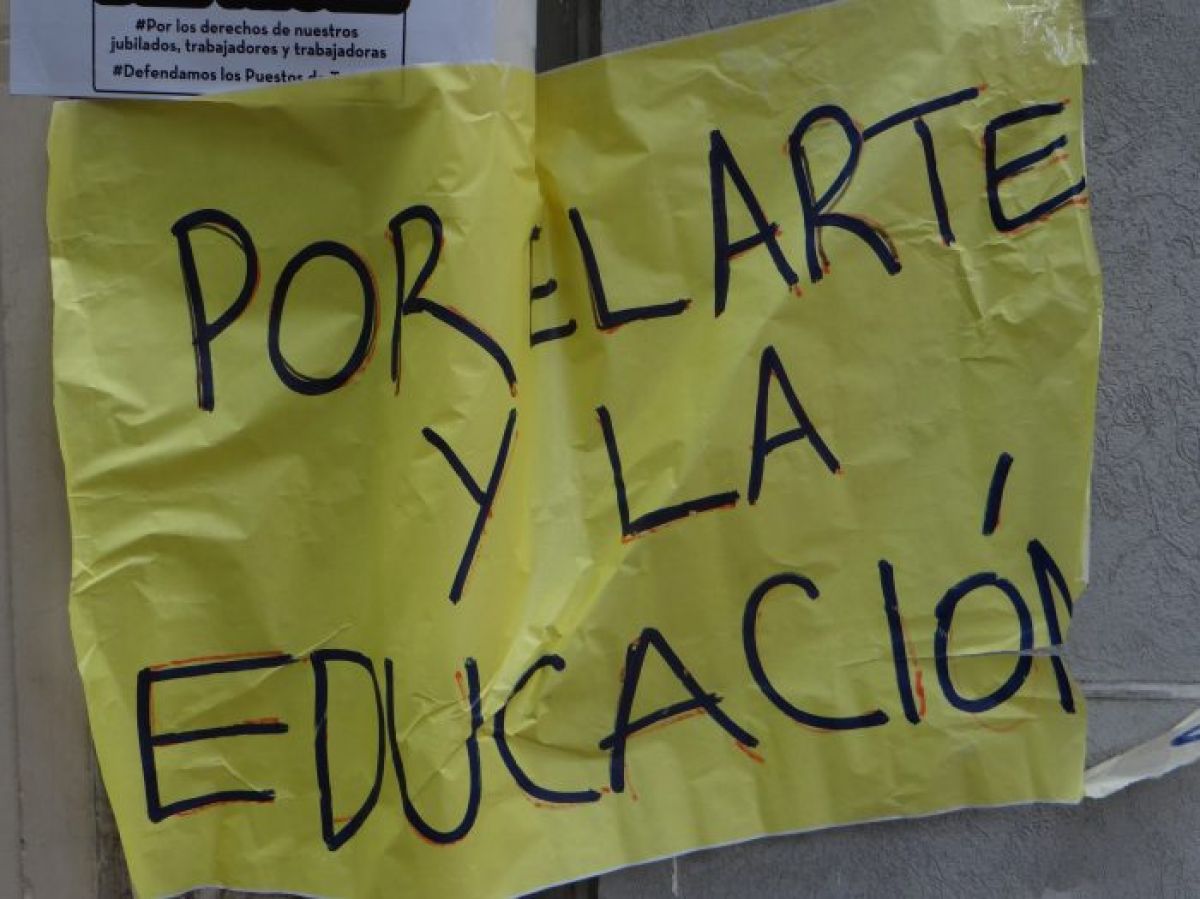 #Por los derechos de nuestros
jubilados, trabajadores y trabajadoras
#Defendamos los Puestos de
POR EL ARTE
Y LA
EDUCACIÓN